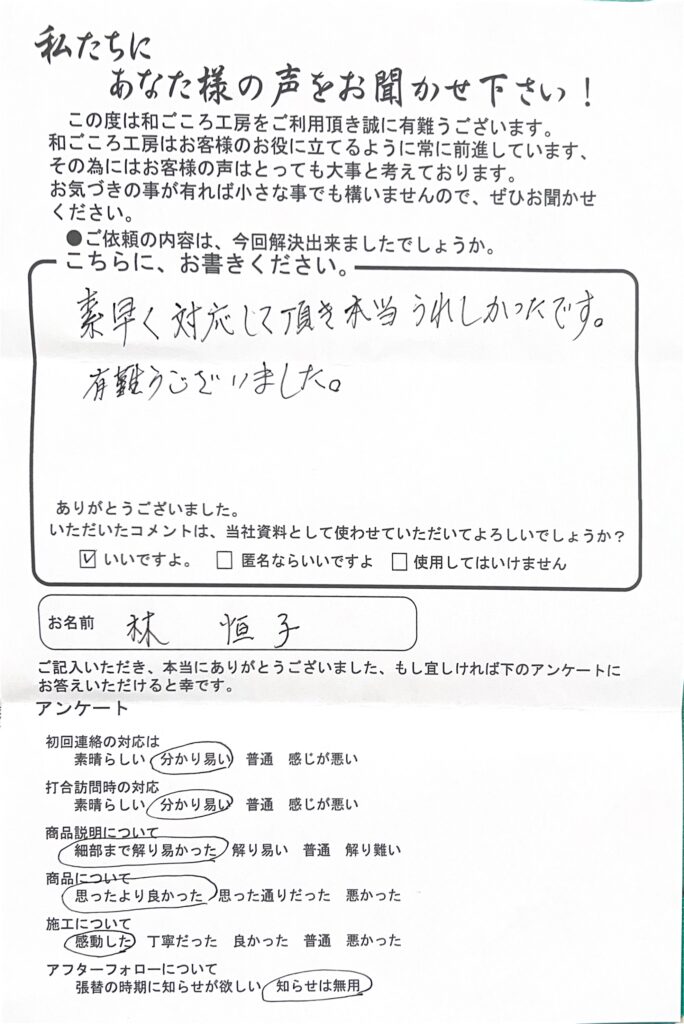 私たちに
あなた様の声をお聞かせ下さい！
この度は和ごころ工房をご利用頂き誠に有難うございます。
和ごころ工房はお客様のお役に立てるように常に前進しています、
その為にはお客様の声はとっても大事と考えております。
お気づきの事が有れば小さな事でも構いませんので、ぜひお聞かせ
ください。
●ご依頼の内容は、今回解決出来ましたでしょうか。
こちらに、お書きください。
素早く対応して頂き本当うれしかったです。
有難うございました。
ありがとうございました。
いただいたコメントは、当社資料として使わせていただいてよろしいでしょうか？
☑ いいですよ。 □ 匿名ならいいですよ □ 使用してはいけません
お名前 林 恒子
ご記入いただき、本当にありがとうございました、もし宜しければ下のアンケートに
お答えいただけると幸です。
アンケート
初回連絡の対応は
素晴らしい 分かり易い 普通 感じが悪い
打合訪問時の対応
素晴らしい 分かり易い 普通 感じが悪い
商品説明について
細部まで解り易かった 解り易い 普通 解り難い
商品について
思ったより良かった 思った通りだった 悪かった
施工について
感動した 丁寧だった 良かった 普通 悪かった
アフターフォローについて
張替の時期に知らせが欲しい 知らせは無用